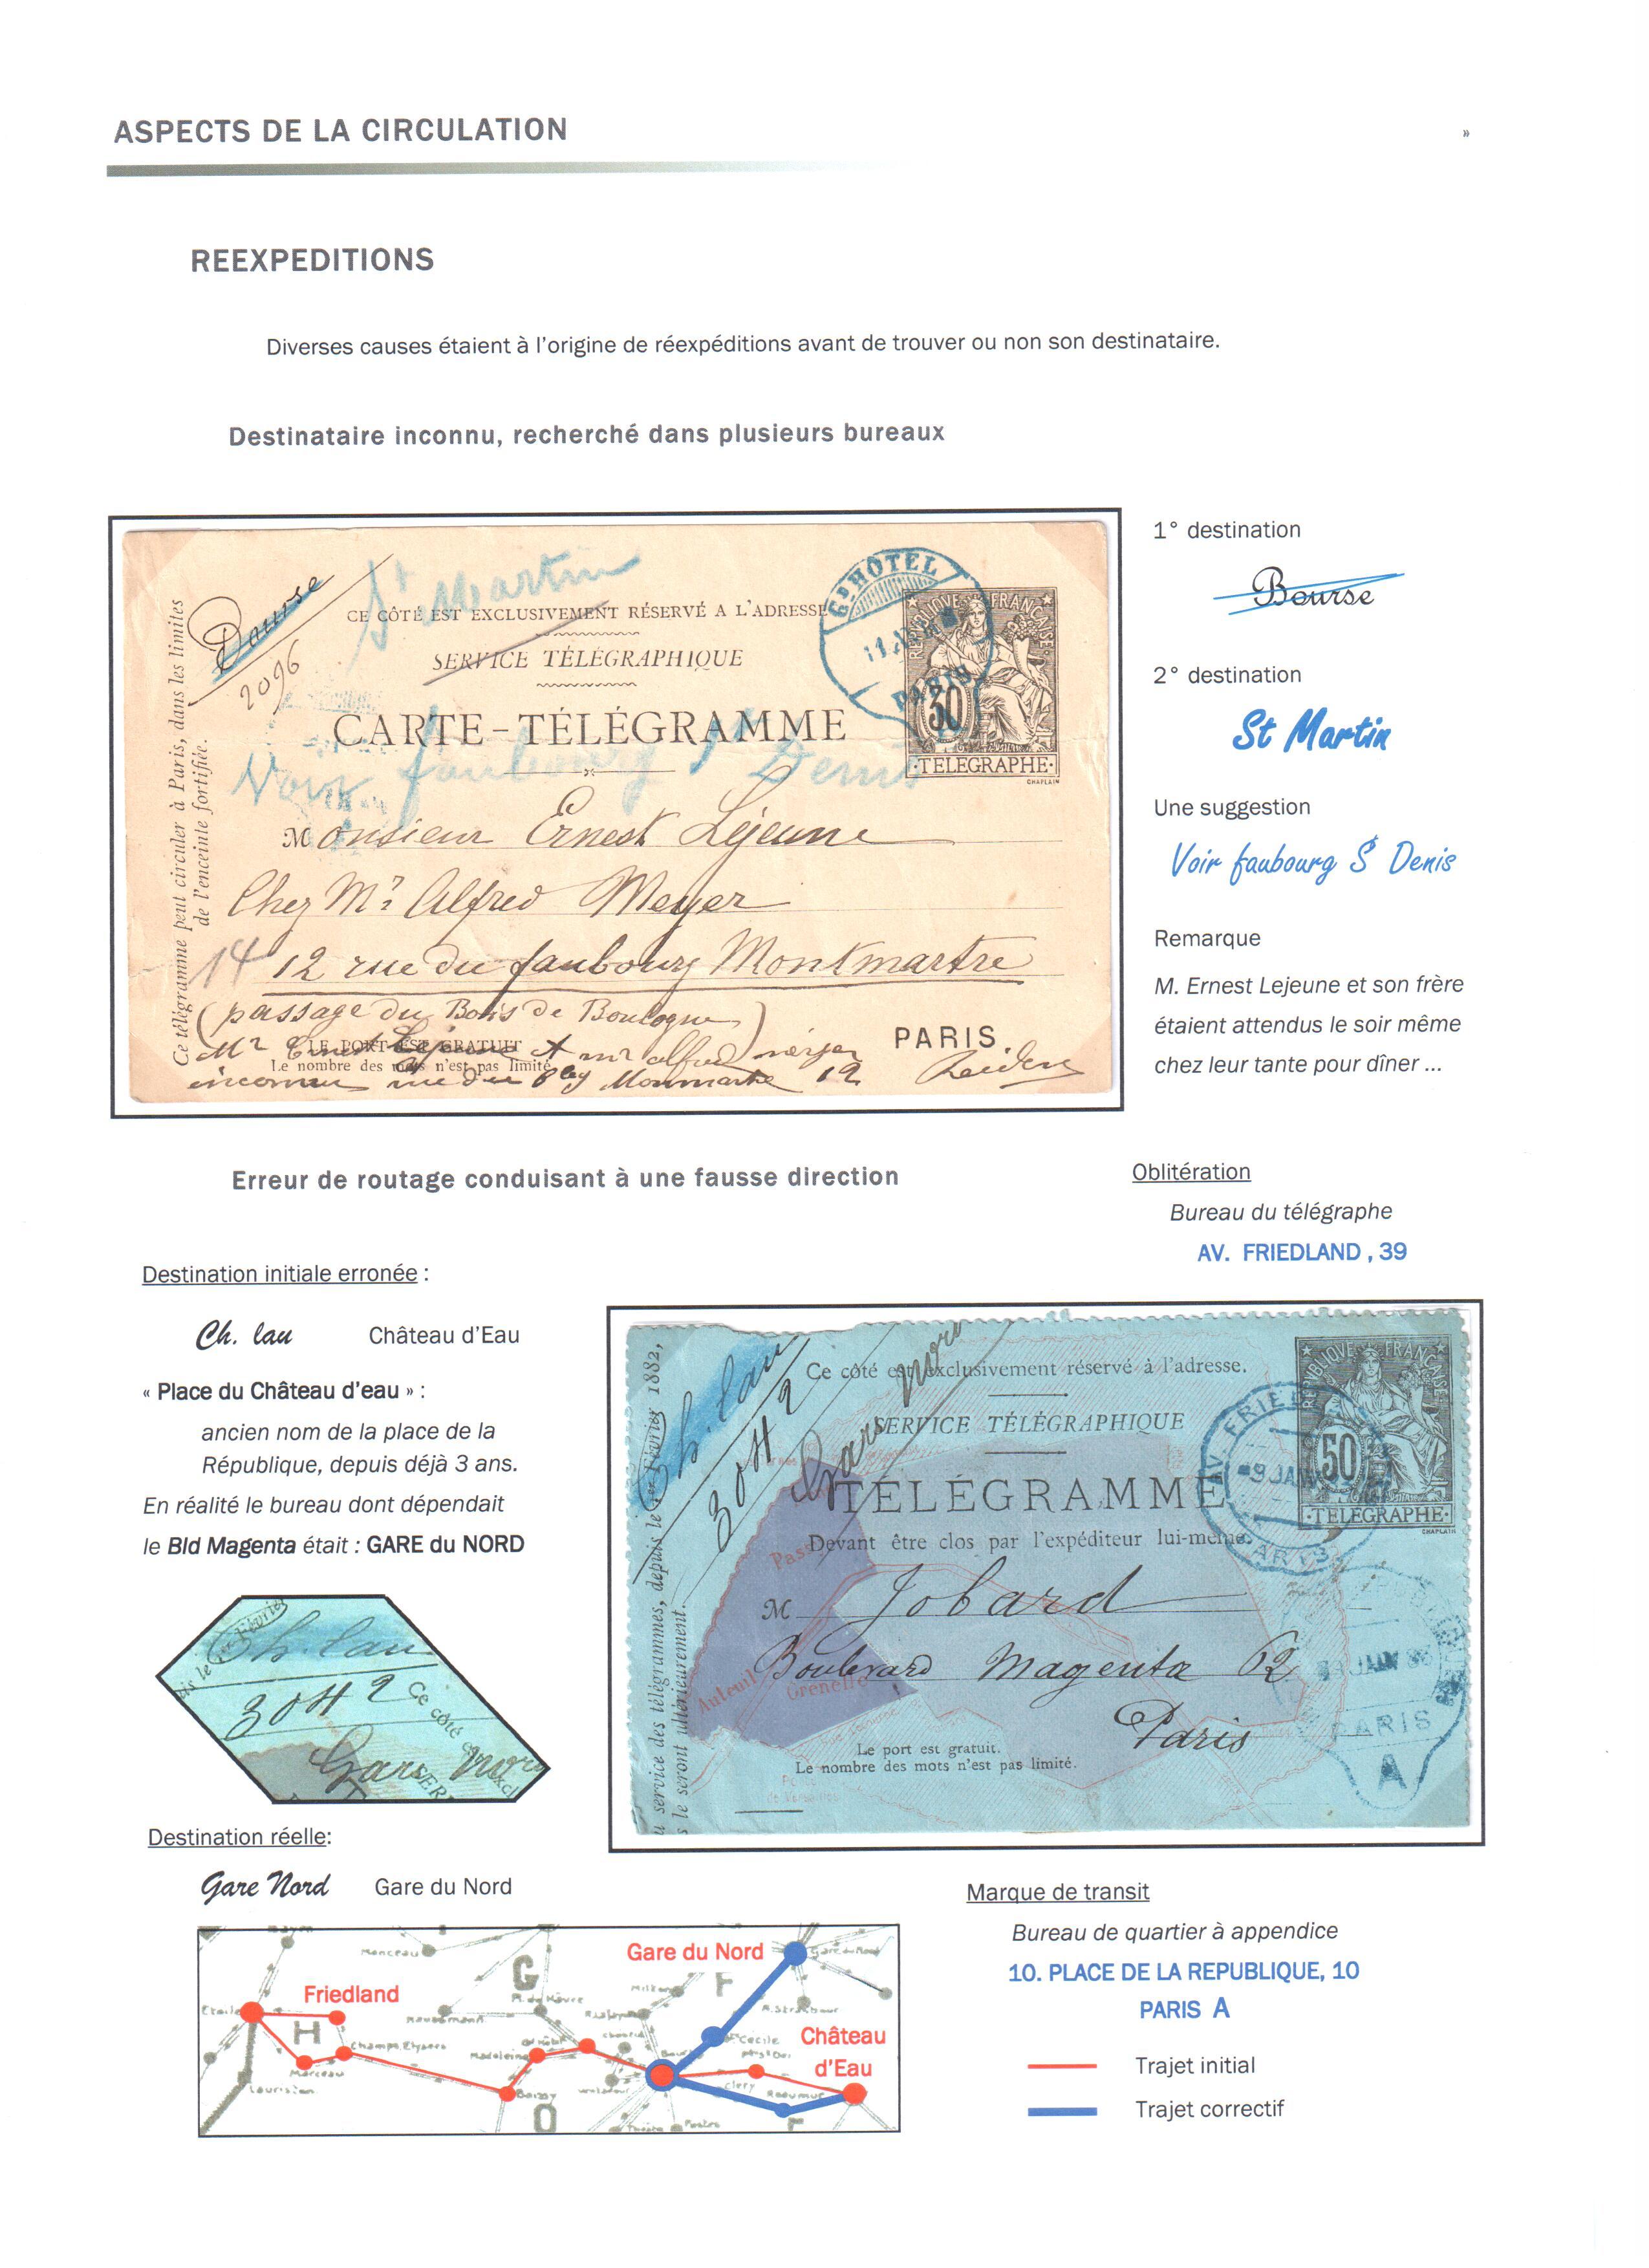 ASPECTS DE LA CIRCULATION
»
REEXPEDITIONS
Diverses causes étaient à l'origine de réexpéditions avant de trouver ou non son destinataire.
Destinataire inconnu, recherché dans plusieurs bureaux
Bourse
2096
St Martin
CE CÔTÉ EST EXCLUSIVEMENT RÉSERVÉ A L'ADRESSE
SERVICE TÉLÉGRAPHIQUE
CARTE-TÉLÉGRAMME
Voir faubourg St Denis
Ce télégramme peut circuler à Paris, dans les limites
de l'enceinte fortifiée.
Gd HÔTEL
PARIS
RÉPUBLIQUE FRANÇAISE
30
TELEGRAPHE
CHAPLAIN
Monsieur Ernest Lejeune
Chez Mr Alfred Meyer
14 12 rue du faubourg Montmartre
(passage du Bois de Boulogne)
PARIS
LE PORT EST GRATUIT
Le nombre des mots n'est pas limité
inconnu rue du fbg Monmartre 12
1° destination
Bourse
2° destination
St Martin
Une suggestion
Voir faubourg S Denis
Remarque
M. Ernest Lejeune et son frère
étaient attendus le soir même
chez leur tante pour dîner ...
Erreur de routage conduisant à une fausse direction
Oblitération
Bureau du télégraphe
AV. FRIEDLAND , 39
Destination initiale erronée :
Ch. lau Château d'Eau
« Place du Château d'eau » :
ancien nom de la place de la
République, depuis déjà 3 ans.
En réalité le bureau dont dépendait
le Bld Magenta était : GARE du NORD
Ch. lau
3042
Gare Nord
Ce côté est exclusivement réservé à l'adresse.
SERVICE TÉLÉGRAPHIQUE
TÉLÉGRAMME
Devant être clos par l'expéditeur lui-même.
service des télégrammes, depuis le 1er Février 1882,
le seront ultérieurement.
RÉPUBLIQUE FRANÇAISE
50
TELEGRAPHE
CHAPLAIN
M Jobard
Boulevard Magenta 62
Paris
Auteuil
Grenelle
Le port est gratuit.
Le nombre des mots n'est pas limité.
PARIS
A
Ch. lau
3042
Ce côté
Gare Nord
Destination réelle:
Gare Nord Gare du Nord
Marque de transit
Bureau de quartier à appendice
10. PLACE DE LA REPUBLIQUE, 10
PARIS A
Trajet initial
Trajet correctif
Gare du Nord
Friedland
Château
d'Eau
Monceau
G
F
H
Etoile
Champs Elysées
Marceau
Madeleine
Boissy
O
Cléry
Réaumur